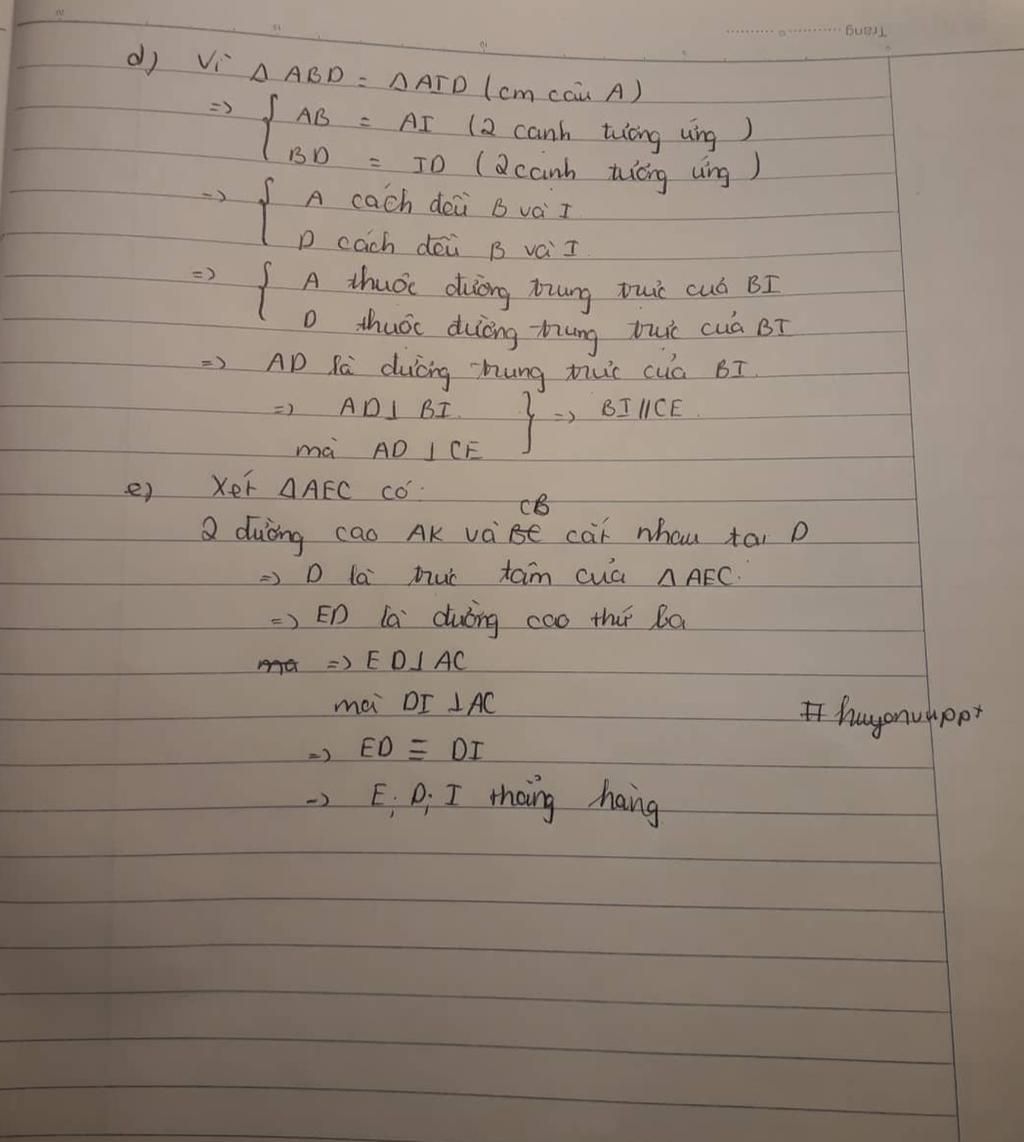 Trang
d) Vì Δ ABD = ΔAID (cm câu A)
=> { AB = AI (2 cạnh tương ứng)
BD = ID (2 cạnh tương ứng)
=> { A cách đều B và I
D cách đều B và I.
=> { A thuộc đường trung trực của BI
D thuộc đường trung trực của BI
=> AD là đường trung trực của BI.
=> AD⊥ BI. } => BI//CE.
mà AD ⊥ CE
e) Xét ΔAEC có:
CB
2 đường cao AK và cắt nhau tại D
=> D là trực tâm của ΔAEC.
=> ED là đường cao thứ ba
mà => ED⊥AC
mà DI ⊥AC
=> ED ≡ DI
=> E; D; I thẳng hàng